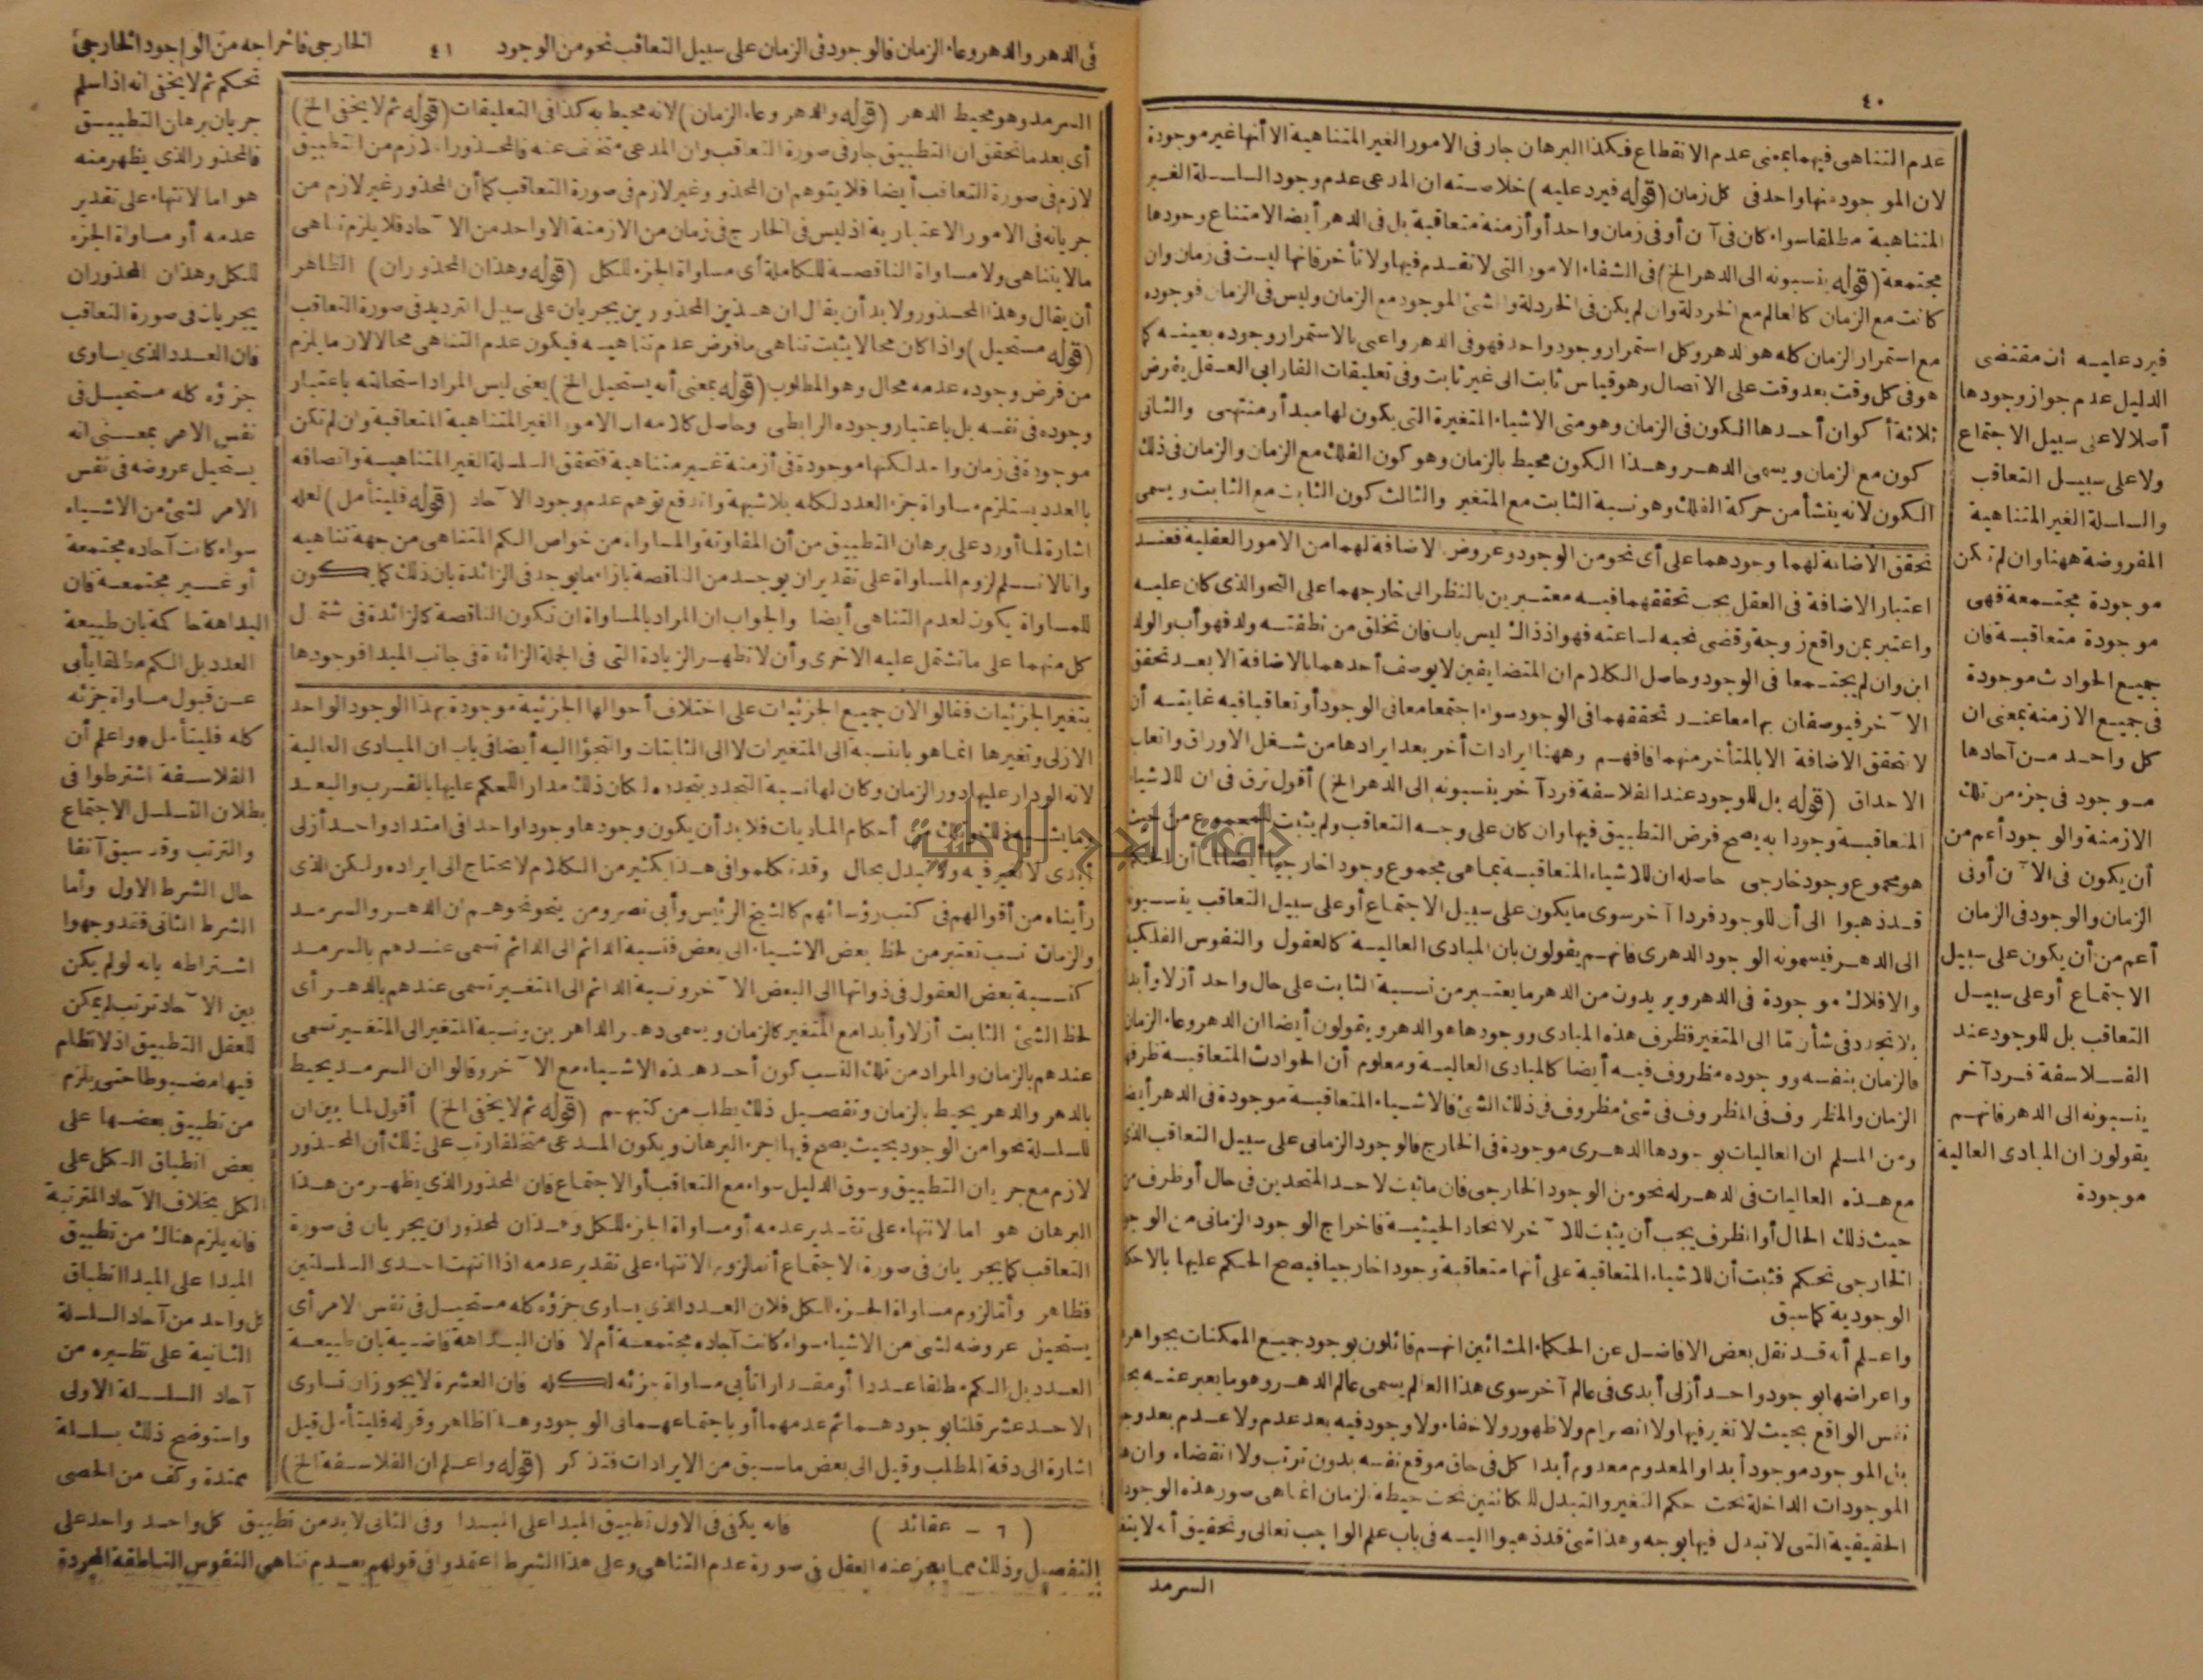 ٤٠
عدم التناهى فيهما بمعنى عدم الانقطاع فكذا البرهان جار فى الامور الغير المتناهية الا أنها غير موجودة
لان الموجود منها واحد فى كل زمان (قوله فيرد عليه) خلاصته ان المدعى عدم وجود السلسلة الغير
المتناهية مطلقا سواء كان فى آن أو فى زمان واحد أو أزمنة متعاقبة بل فى الدهر أيضا لامتناع وجودها
مجتمعة (قوله ينسبونه الى الدهر الخ) فى الشفاء الامور التى لا تقدم فيها ولا تأخر فانها ليست فى زمان وان
كانت مع الزمان كالعالم مع الخردلة وان لم يكن فى الخردلة والشئ الموجود مع الزمان وليس فى الزمان فوجوده
مع استمرار الزمان كله هو الدهر وكل استمرار وجود واحد فهو فى الدهر واعنى بالاستمرار وجوده بعينه كما
هو فى كل وقت بعد وقت على الاتصال وهو قياس ثابت الى غير ثابت وفى تعليقات الفارابى العقل يفرض
ثلاثة أكوان أحدها الكون فى الزمان وهو متى الاشياء المتغيرة التى يكون لها مبدأ ومنتهى والثانى
كون مع الزمان ويسمى الدهر وهذا الكون محيط بالزمان وهو كون الفلك مع الزمان والزمان فى ذلك
الكون لانه ينشأ من حركة الفلك وهو نسبة الثابت مع المتغير والثالث كون الثابت مع الثابت ويسمى
تحقق الاضافة لهما وجودهما على أى نحو من الوجود وعروض الاضافة لهما من الامور العقلية فعند
اعتبار الاضافة فى العقل يجب تحققهما فيه معتبرين بالنظر الى خارجهما على النحو الذى كان عليه
واعتبر بمن واقع زوجة وقضى نحبه لساعته فهو اذ ذاك ليس باب فان تخلق من نطفته ولد فهو أب والولد
ابن وان لم يجتمعا فى الوجود وحاصل الكلام ان المتضايفين لا يوصف أحدهما بالاضافة الا بعد تحقق
الآخر فيوصفان بها معا عند تحققهما فى الوجود سواء اجتمعا معا فى الوجود أو تعاقبا فيه غايته أن
لا تتحقق الاضافة الا بالمتأخر منهما فافهم وههنا ايرادات أخر بعد ايرادها من شغل الاوراق واتعاب
الاحداق (قوله بل للوجود عند الفلاسفة فرد آخر ينسبونه الى الدهر الخ) أقول ترق فى ان للاشياء
المتعاقبة وجودا به يصح فرض التطبيق فيها وان كان على وجه التعاقب ولم يثبت للمجموع من حيث
هو مجموع وجود خارجى حاصله ان للاشياء المتعاقبة بما هى مجموع وجودا خارجيا أيضا
قد ذهبوا الى أن للوجود فردا آخر سوى ما يكون على سبيل الاجتماع أو على سبيل التعاقب ينسبونه
الى الدهر فيسمونه الوجود الدهرى فانهم يقولون بان المبادى العالية كالعقول والنفوس الفلكية
والافلاك موجودة فى الدهر ويريدون من الدهر ما يعتبر من نسبة الثابت على حال واحد أزلا وأبدا
بلا تجدد فى شأن ما الى المتغير فظرف هذه المبادى ووجودها هو الدهر ويقولون أيضا ان الدهر وعاء الزمان
فالزمان بنفسه ووجوده مظروف فيه أيضا كالمبادى العالية ومعلوم أن الحوادث المتعاقبة ظرفها
الزمان والمظروف فى المظروف فى شئ مظروف فى ذلك الشئ فالاشياء المتعاقبة موجودة فى الدهر أيضا
ومن المسلم ان العاليات بوجودها الدهرى موجودة فى الخارج فالوجود الزمانى على سبيل التعاقب الذى
مع هذه العاليات فى الدهر له نحو من الوجود الخارجى فان ما ثبت لاحد المتحدين فى حال أو ظرف من
حيث ذلك الحال أو الظرف يجب أن يثبت للآخر لاتحاد الحيثية فاخراج الوجود الزمانى من الوجود
الخارجى تحكم فثبت أن للاشياء المتعاقبة على أنها متعاقبة وجودا خارجيا فيصح الحكم عليها بالاحكام
الوجودية كما سبق
واعلم أنه قد نقل بعض الافاضل عن الحكماء المشائين انهم قائلون بوجود جميع الممكنات بجواهرها
واعراضها بوجود واحد أزلى أبدى فى عالم آخر سوى هذا العالم يسمى عالم الدهر وهو ما يعبر عنه
نفس الواقع بحيث لا تغير فيها ولا انصرام ولا ظهور ولا خفاء ولا وجود فيه بعد عدم ولا عدم بعد وجود
بل الموجود موجود أبدا والمعدوم معدوم أبدا كل فى حاق موقع نفسه بدون ترتب ولا انقضاء وان
الموجودات الداخلة تحت حكم التغير والتبدل للكائنين تحت حيطة الزمان انما هى صور هذه الوجودات
الحقيقية التى لا تبدل فيها بوجه وهذا شئ قد ذهبوا اليه فى باب علم الواجب تعالى وتحقيق أنه لا يتغير
السرمد
فيرد عليه ان مقتضى
الدليل عدم جواز وجودها
أصلا لا على سبيل الاجتماع
ولا على سبيل التعاقب
والسلسلة الغير المتناهية
المفروضة ههنا وان لم تكن
موجودة مجتمعة فهى
موجودة متعاقبة فان
جميع الحوادث موجودة
فى جميع الازمنة بمعنى ان
كل واحد من آحادها
موجود فى جزء من تلك
الازمنة والوجود أعم من
أن يكون فى الآن أو فى
الزمان والوجود فى الزمان
أعم من أن يكون على سبيل
الاجتماع أو على سبيل
التعاقب بل للوجود عند
الفلاسفة فرد آخر
ينسبونه الى الدهر فانهم
يقولون ان المبادى العالية
موجودة
فى الدهر والدهر وعاء الزمان فالوجود فى الزمان على سبيل التعاقب نحو من الوجود ٤١ الخارجى فاخراجه من الوجود الخارجى
السرمد وهو محيط الدهر (قوله والدهر وعاء الزمان) لانه محيط به كذا فى التعليقات (قوله ثم لا يخفى الخ)
أى بعد ما تحقق ان التطبيق جار فى صورة التعاقب وان المدعى متخلف عنه فالمحذور اللازم من التطبيق
لازم فى صورة التعاقب أيضا فلا يتوهم ان المحذور غير لازم فى صورة التعاقب كما أن المحذور غير لازم من
جريانه فى الامور الاعتبارية اذ ليس فى الخارج فى زمان من الازمنة الا واحد من الآحاد فلا يلزم تناهى
مالا يتناهى ولا مساواة الناقصة للكاملة أى مساواة الجزء للكل (قوله وهذان المحذوران) الظاهر
أن يقال وهذا المحذور ولا بد أن يقال ان هذين المحذورين يجريان على سبيل الترديد فى صورة التعاقب
(قوله مستحيل) واذا كان محالا يثبت تناهى ما فرض عدم تناهيه فيكون عدم التناهى محالا لان ما يلزم
من فرض وجوده عدمه محال وهو المطلوب (قوله بمعنى أنه يستحيل الخ) يعنى ليس المراد استحالته باعتبار
وجوده فى نفسه بل باعتبار وجوده الرابطى وحاصل كلامه ان الامور الغير المتناهية المتعاقبة وان لم تكن
موجودة فى زمان واحد لكنها موجودة فى أزمنة غير متناهية فتحقق السلسلة الغير المتناهية واتصافه
بالعدد يستلزم مساواة جزء العدد لكله بلا شبهة واندفع توهم عدم وجود الآحاد (قوله فليتأمل) لعله
اشارة لما أورد على برهان التطبيق من أن المفاوتة والمساواة من خواص الكم المتناهى من جهة تناهيه
وانا لا نسلم لزوم المساواة على تقدير ان يوجد من الناقصة بازاء ما يوجد فى الزائدة بان ذلك كما يكون
للمساواة يكون لعدم التناهى أيضا والجواب ان المراد بالمساواة ان تكون الناقصة كالزائدة فى شتمل
كل منهما على ما تشتمل عليه الاخرى وأن لا تظهر الزيادة التى فى الجملة الزائدة فى جانب المبدا فوجودها
بتغير الجزئيات فقالوا لان جميع الجزئيات على اختلاف أحوالها الجزئية موجودة بهذا الوجود الواحد
الازلى وتغيرها انما هو بالنسبة الى المتغيرات لا الى الثابتات والتجؤا اليه أيضا فى باب ان المبادى العالية
لانه لو دار عليها دور الزمان وكان لها نسبة التجدد بتجدده لكان ذلك مدار للحكم عليها بالقرب والبعد
وما يشبه ذلك من أحكام الماديات فلا بد أن يكون وجودها وجودا واحدا فى امتداد واحد أزلى
أبدى لا تغير فيه ولا تبدل بحال وقد تكلموا فى هذا بكثير من الكلام لا يحتاج الى ايراده ولكن الذى
رأيناه من أقوالهم فى كتب رؤسائهم كالشيخ الرئيس وأبى نصر ومن ينحو نحوهم ان الدهر والسرمد
والزمان نسب تعتبر من لحظ بعض الاشياء الى بعض فنسبة الدائم الى الدائم تسمى عندهم بالسرمد
كنسبة بعض العقول فى ذواتها الى البعض الآخر ونسبة الدائم الى المتغير تسمى عندهم بالدهر أى
لحظ الشئ الثابت أزلا وأبدا مع المتغير كالزمان ويسمى دهر الداهرين ونسبة المتغير الى المتغير تسمى
عندهم بالزمان والمراد من تلك النسب كون أحد هذه الاشياء مع الآخر وقالوا ان السرمد يحيط
بالدهر والدهر يحيط بالزمان وتفصيل ذلك يطلب من كتبهم (قوله ثم لا يخفى الخ) أقول لما بين ان
للسلسلة نحوا من الوجود بحيث يصح فيها اجراء البرهان ويكون المدعى متخلفا رتب على ذلك أن المحذور
لازم مع جريان التطبيق وسوق الدليل سواء مع التعاقب أو الاجتماع فان المحذور الذى يظهر من هذا
البرهان هو اما لانتهاء على تقدير عدمه أو مساواة الجزء للكل وهذان المحذوران يجريان فى صورة
التعاقب كما يجريان فى صورة الاجتماع أما لزوم الانتهاء على تقدير عدمه اذا انتهت احدى السلسلتين
فظاهر وأما لزوم مساواة الجزء للكل فلان العدد الذى يساوى جزؤه كله مستحيل فى نفس الامر أى
يستحيل عروضه لشئ من الاشياء سواء كانت آحاده مجتمعة أم لا فان البداهة قاضية بان طبيعة
العدد بل الكم مطلقا عددا أو مقدارا تأبى مساواة جزئه لكله فان العشرة لا يجوز ان تساوى
الاحد عشر قلنا بوجودهما ثم عدمهما أو باجتماعهما فى الوجود وهذا ظاهر وقوله فليتأمل قيل
اشارة الى دقة المطلب وقيل الى بعض ما سبق من الايرادات فتذكر (قوله واعلم ان الفلاسفة الخ)
تحكم ثم لا يخفى انه اذا سلم
جريان برهان التطبيق
فالمحذور الذى يظهر منه
هو اما لانتهاء على تقدير
عدمه أو مساواة الجزء
للكل وهذان المحذوران
يجريان فى صورة التعاقب
فان العدد الذى يساوى
جزؤه كله مستحيل فى
نفس الامر بمعنى انه
يستحيل عروضه فى نفس
الامر لشئ من الاشياء
سواء كانت آحاده مجتمعة
أو غير مجتمعة فان
البداهة حاكمة بان طبيعة
العدد بل الكم مطلقا يأبى
عن قبول مساواة جزئه
كله فليتأمل * واعلم أن
الفلاسفة اشترطوا فى
بطلان التسلسل الاجتماع
والترتب وقد سبق آنفا
حال الشرط الاول وأما
الشرط الثانى فقد وجهوا
اشتراطه بانه لو لم يكن
بين الآحاد ترتب لم يمكن
للعقل التطبيق اذ لا نظام
فيها مضبوطا حتى يلزم
من تطبيق بعضها على
بعض انطباق الكل على
الكل بخلاف الآحاد المترتبة
فانه يلزم هناك من تطبيق
المبدا على المبدا انطباق
كل واحد من آحاد السلسلة
الثانية على نظيره من
آحاد السلسلة الاولى
واستوضح ذلك بسلسلة
ممتدة وكف من الحصى
فانه يكفى فى الاول تطبيق المبدا على المبدا وفى الثانى لا بد من تطبيق كل واحد واحد على
(٦ - عقائد)
التفصيل وذلك مما يعجز عنه العقل فى صورة عدم التناهى وعلى هذا الشرط اعتمدوا فى قولهم بعدم تناهى النفوس الناطقة المجردة